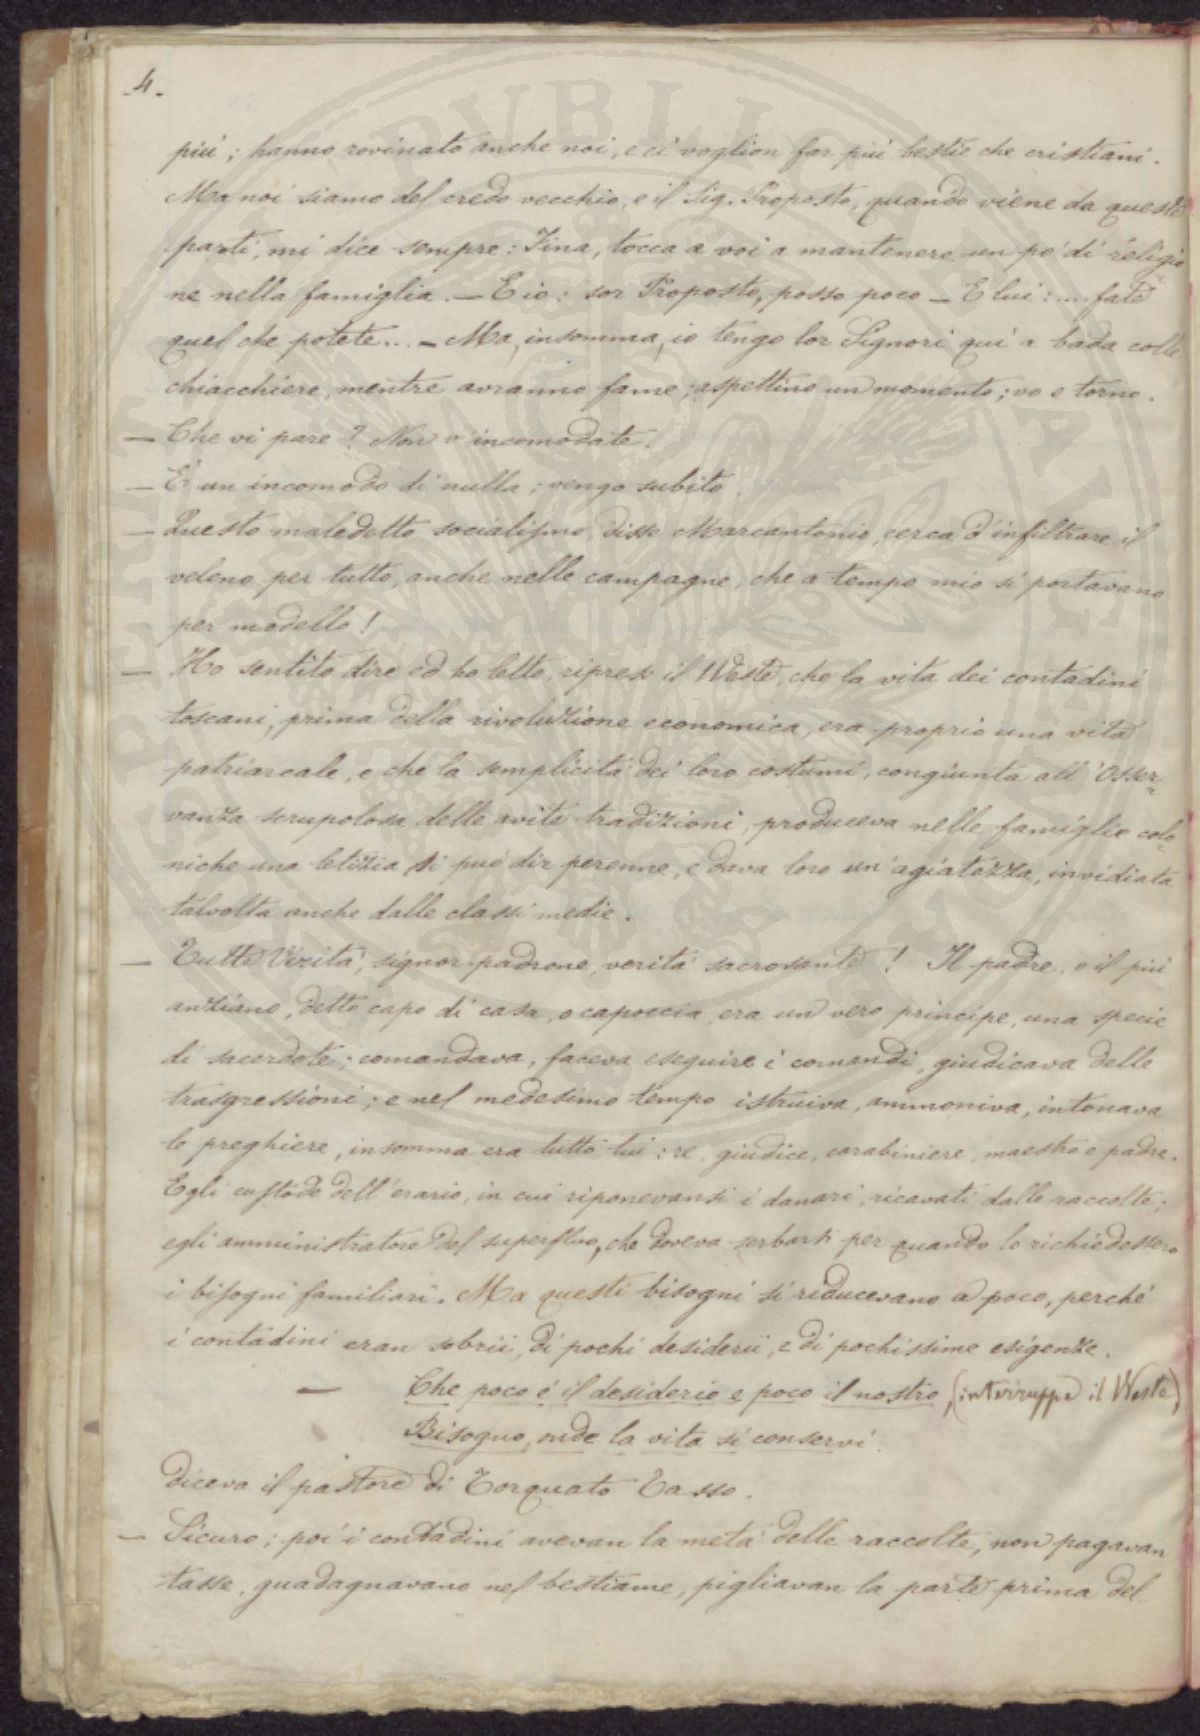 4.
più; hanno rovinato anche noi, e ci voglion far più bestie che cristiani.
Ma noi siamo del credo vecchio, e il Sig. Proposto, quando viene da queste
parti, mi dice sempre: Tina, tocca a voi a mantenere un po' di religio
ne nella famiglia. — E io: sor Proposto, posso poco — E lui: .... fate
quel che potete... — Ma, insomma, io tengo lor Signori qui a bada colle
chiacchiere, mentre avranno fame; aspettino un momento; vo e torno.
— Che vi pare? Non v'incomodate.
— È un incomodo di nulla; vengo subito.
— Questo maledetto socialismo, disse Marcantonio, cerca d'infiltrare il
veleno per tutto, anche nelle campagne, che a tempo mio si portavano
per modello!
— Ho sentito dire ed ho letto, riprese il Weste, che la vita dei contadini
toscani, prima della rivoluzione economica, era proprio una vita
patriarcale, e che la semplicità dei loro costumi, congiunta all'osser-
vanza scrupolosa delle avite tradizioni, produceva nelle famiglie colo-
niche una letizia si può dir perenne, e dava loro un'agiatezza, invidiata
talvolta anche dalle classi medie.
— Tutte Verità, signor padrone, verità sacrosante! Il padre, o il più
anziano, detto capo di casa, o capoccia, era un vero principe, una specie
di sacerdote; comandava, faceva eseguire i comandi, giudicava delle
trasgressioni; e nel medesimo tempo istruiva, ammoniva, intonava
le preghiere, insomma era tutto lui: re, giudice, carabiniere, maestro e padre.
Egli custode dell'erario, in cui riponevansi i danari, ricavati dalle raccolte;
egli amministratore del superfluo, che doveva serbarsi per quando lo richiedessero
i bisogni familiari. Ma questi bisogni si riducevano a poco, perché
i contadini eran sobrii, di pochi desiderii, e di pochissime esigenze.
— Che poco è il desiderio e poco il nostro, (interruppe il Weste)
Bisogno, onde la vita si conservi.
diceva il pastore di Torquato Tasso.
— Sicuro; poi i contadini avevan la metà delle raccolte, non pagavan
tasse, guadagnavano nel bestiame, pigliavan la parte prima del